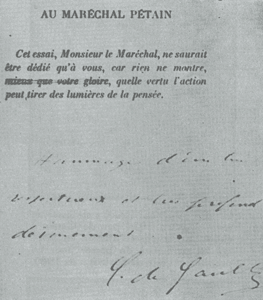 AU MARÉCHAL PÉTAIN
Cet essai, Monsieur le Maréchal, ne saurait
être dédié qu'à vous, car rien ne montre,
mieux que votre gloire, quelle vertu l'action
peut tirer des lumières de la pensée.
Hommage d'un
respectueux et profond
dévouement
C. de Gaulle